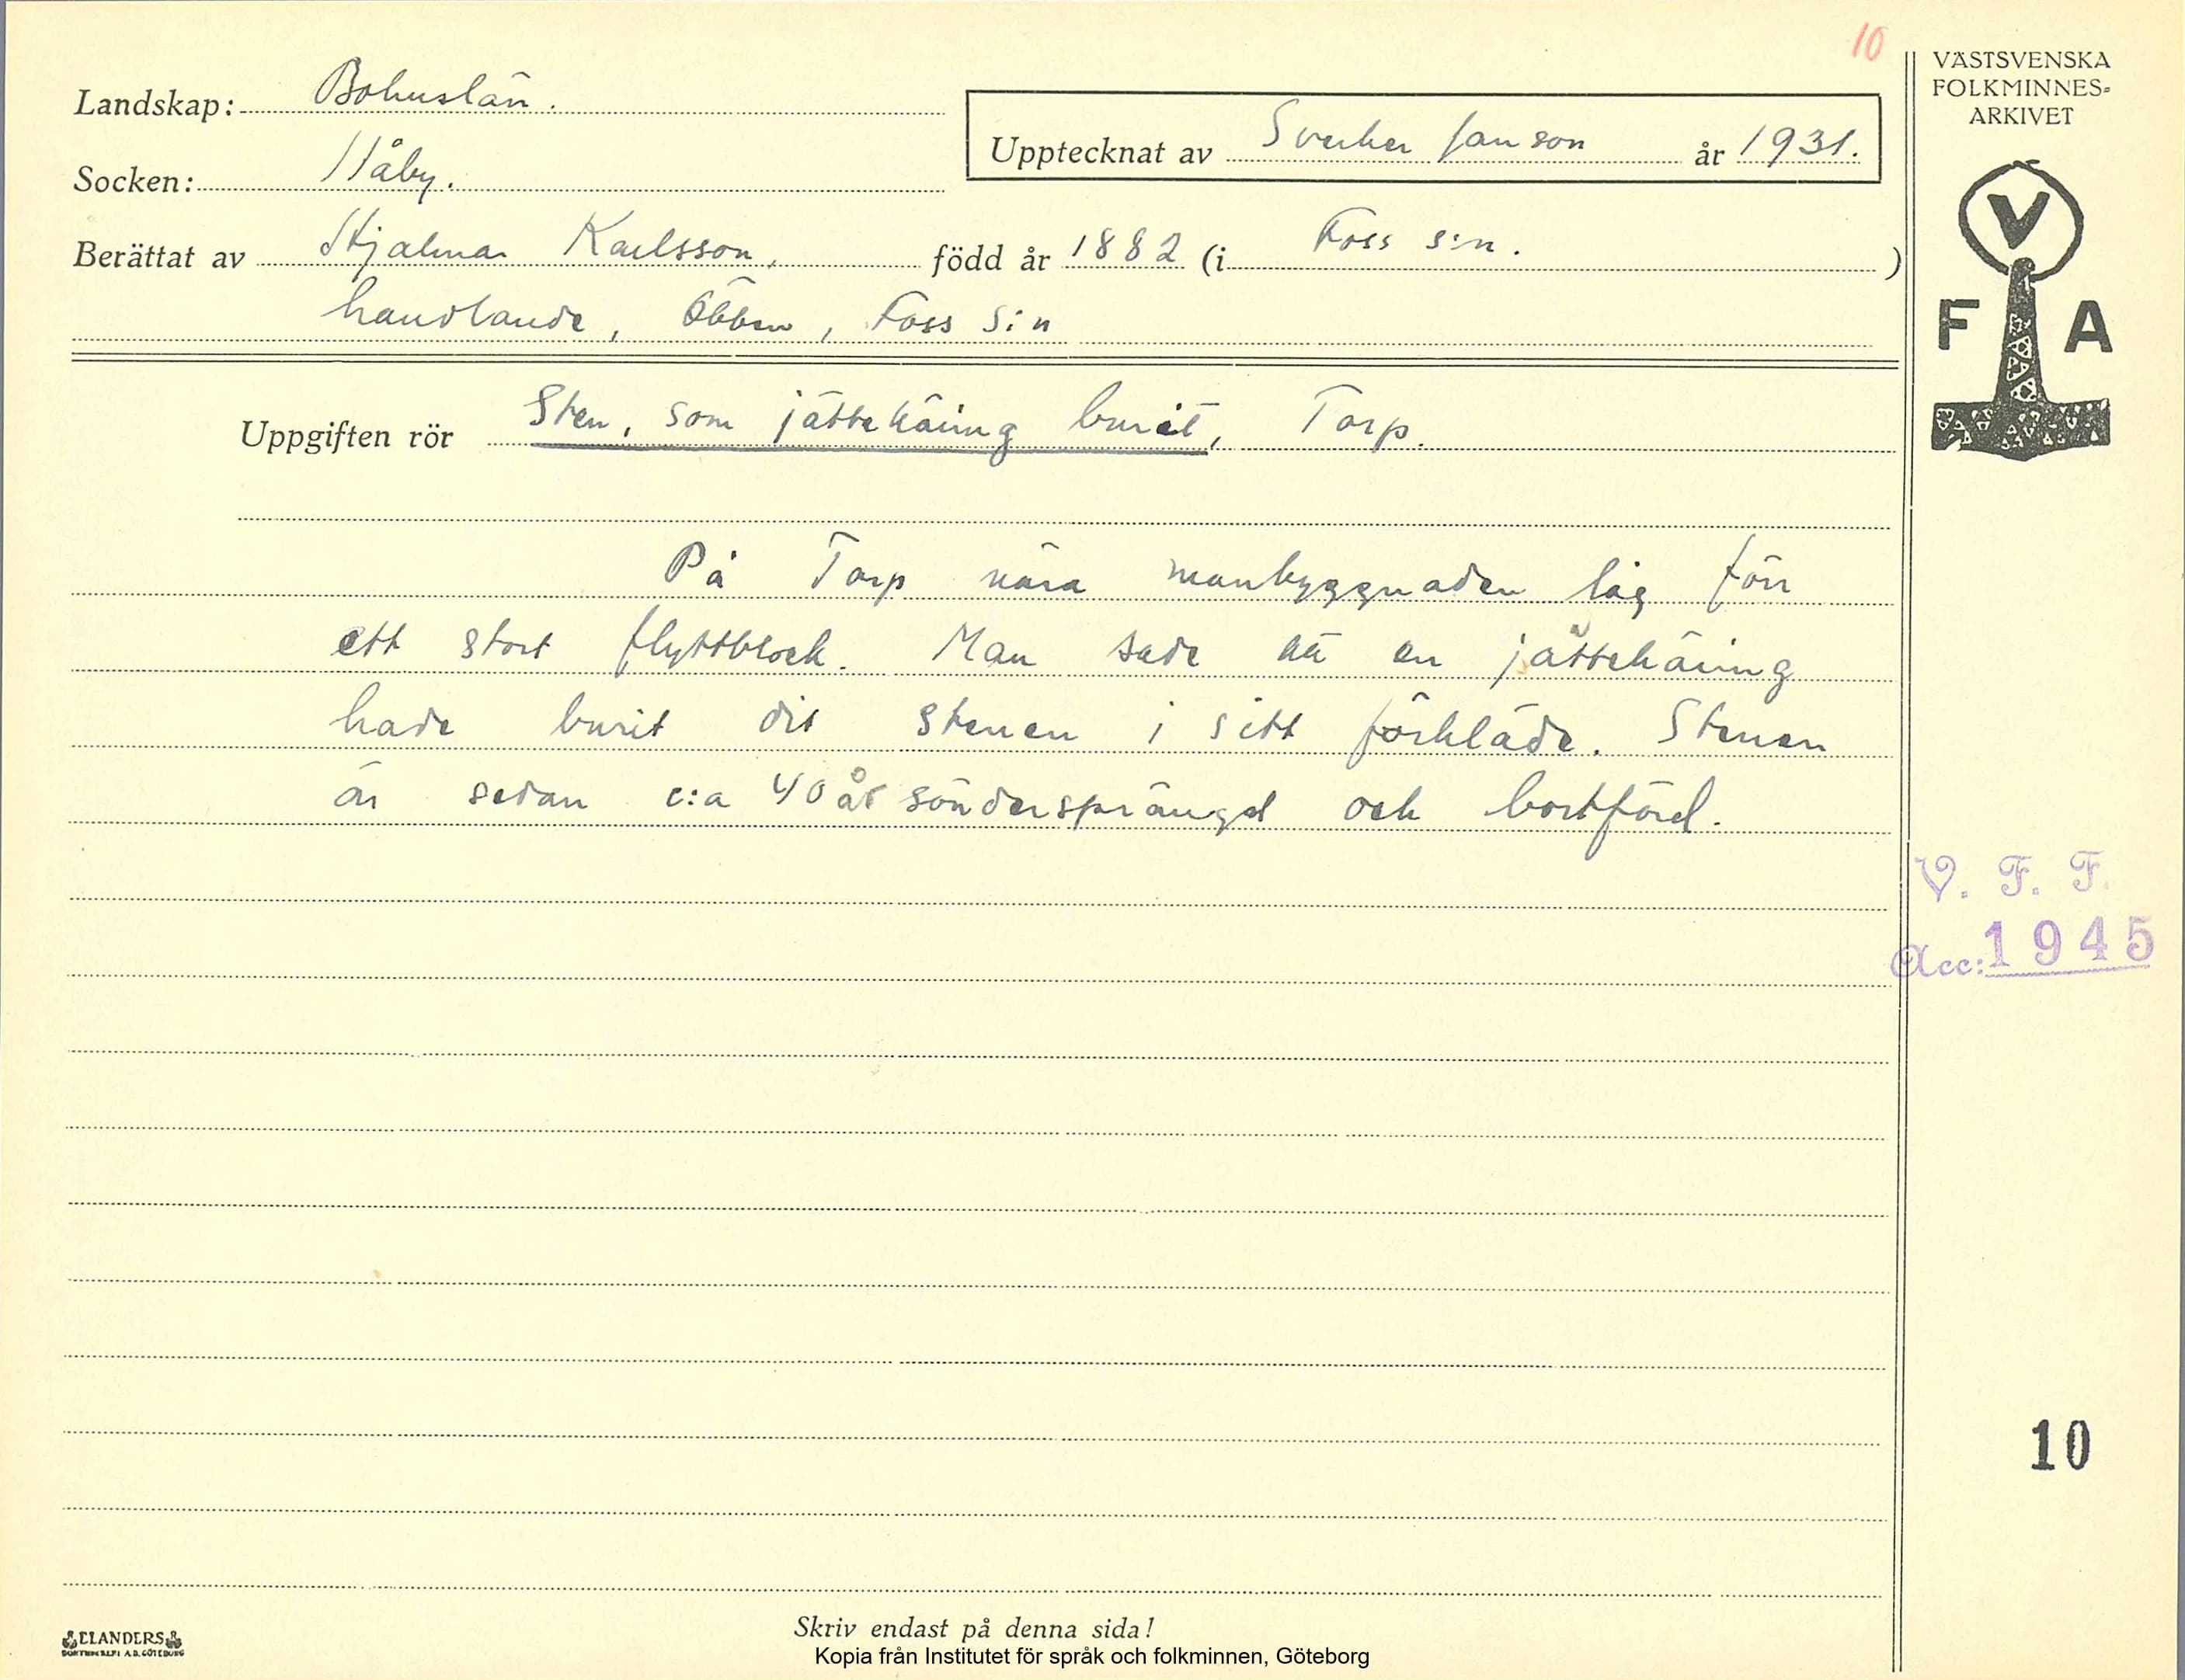 10
VÄSTSVENSKA
FOLKMINNES-
ARKIVET
Landskap: Bohuslän.
Upptecknat av Sverker Janson år 1931.
Socken: Håby.
Berättat av Hjalmar Karlsson, född år 1882 (i Foss s:n.)
handlande, Foss s:n
V
F A
Uppgiften rör Sten, som jättekäring burit, Torp.
På Torp nära manbyggnaden låg förr
ett stort flyttblock. Man sade att en jättekäring
hade burit dit stenen i sitt förkläde. Stenen
är sedan c:a 40 år söndersprängd och bortförd.
V. F. F.
Acc: 1945
10
Skriv endast på denna sida!
ELANDERS
Kopia från Institutet för språk och folkminnen, Göteborg